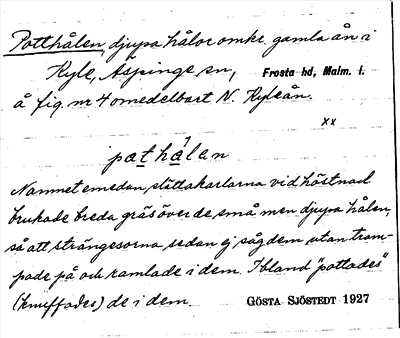 Potthålen, djupa hålor omkr. gamla ån i
Kyle, Äspinge sn, Frosta hd, Malm. l.
å fig. nr 4 omedelbart N. Kyleån.
xx
pat hålan
Namnet emedan slåttakarlarna vid höstnad
brukade breda gräs över de små men djupa hålen,
så att strängesorna sedan ej såg dem utan tram-
pade på och ramlade i dem. Ibland "pottades"
(knuffades) de i dem.
GÖSTA SJÖSTEDT 1927